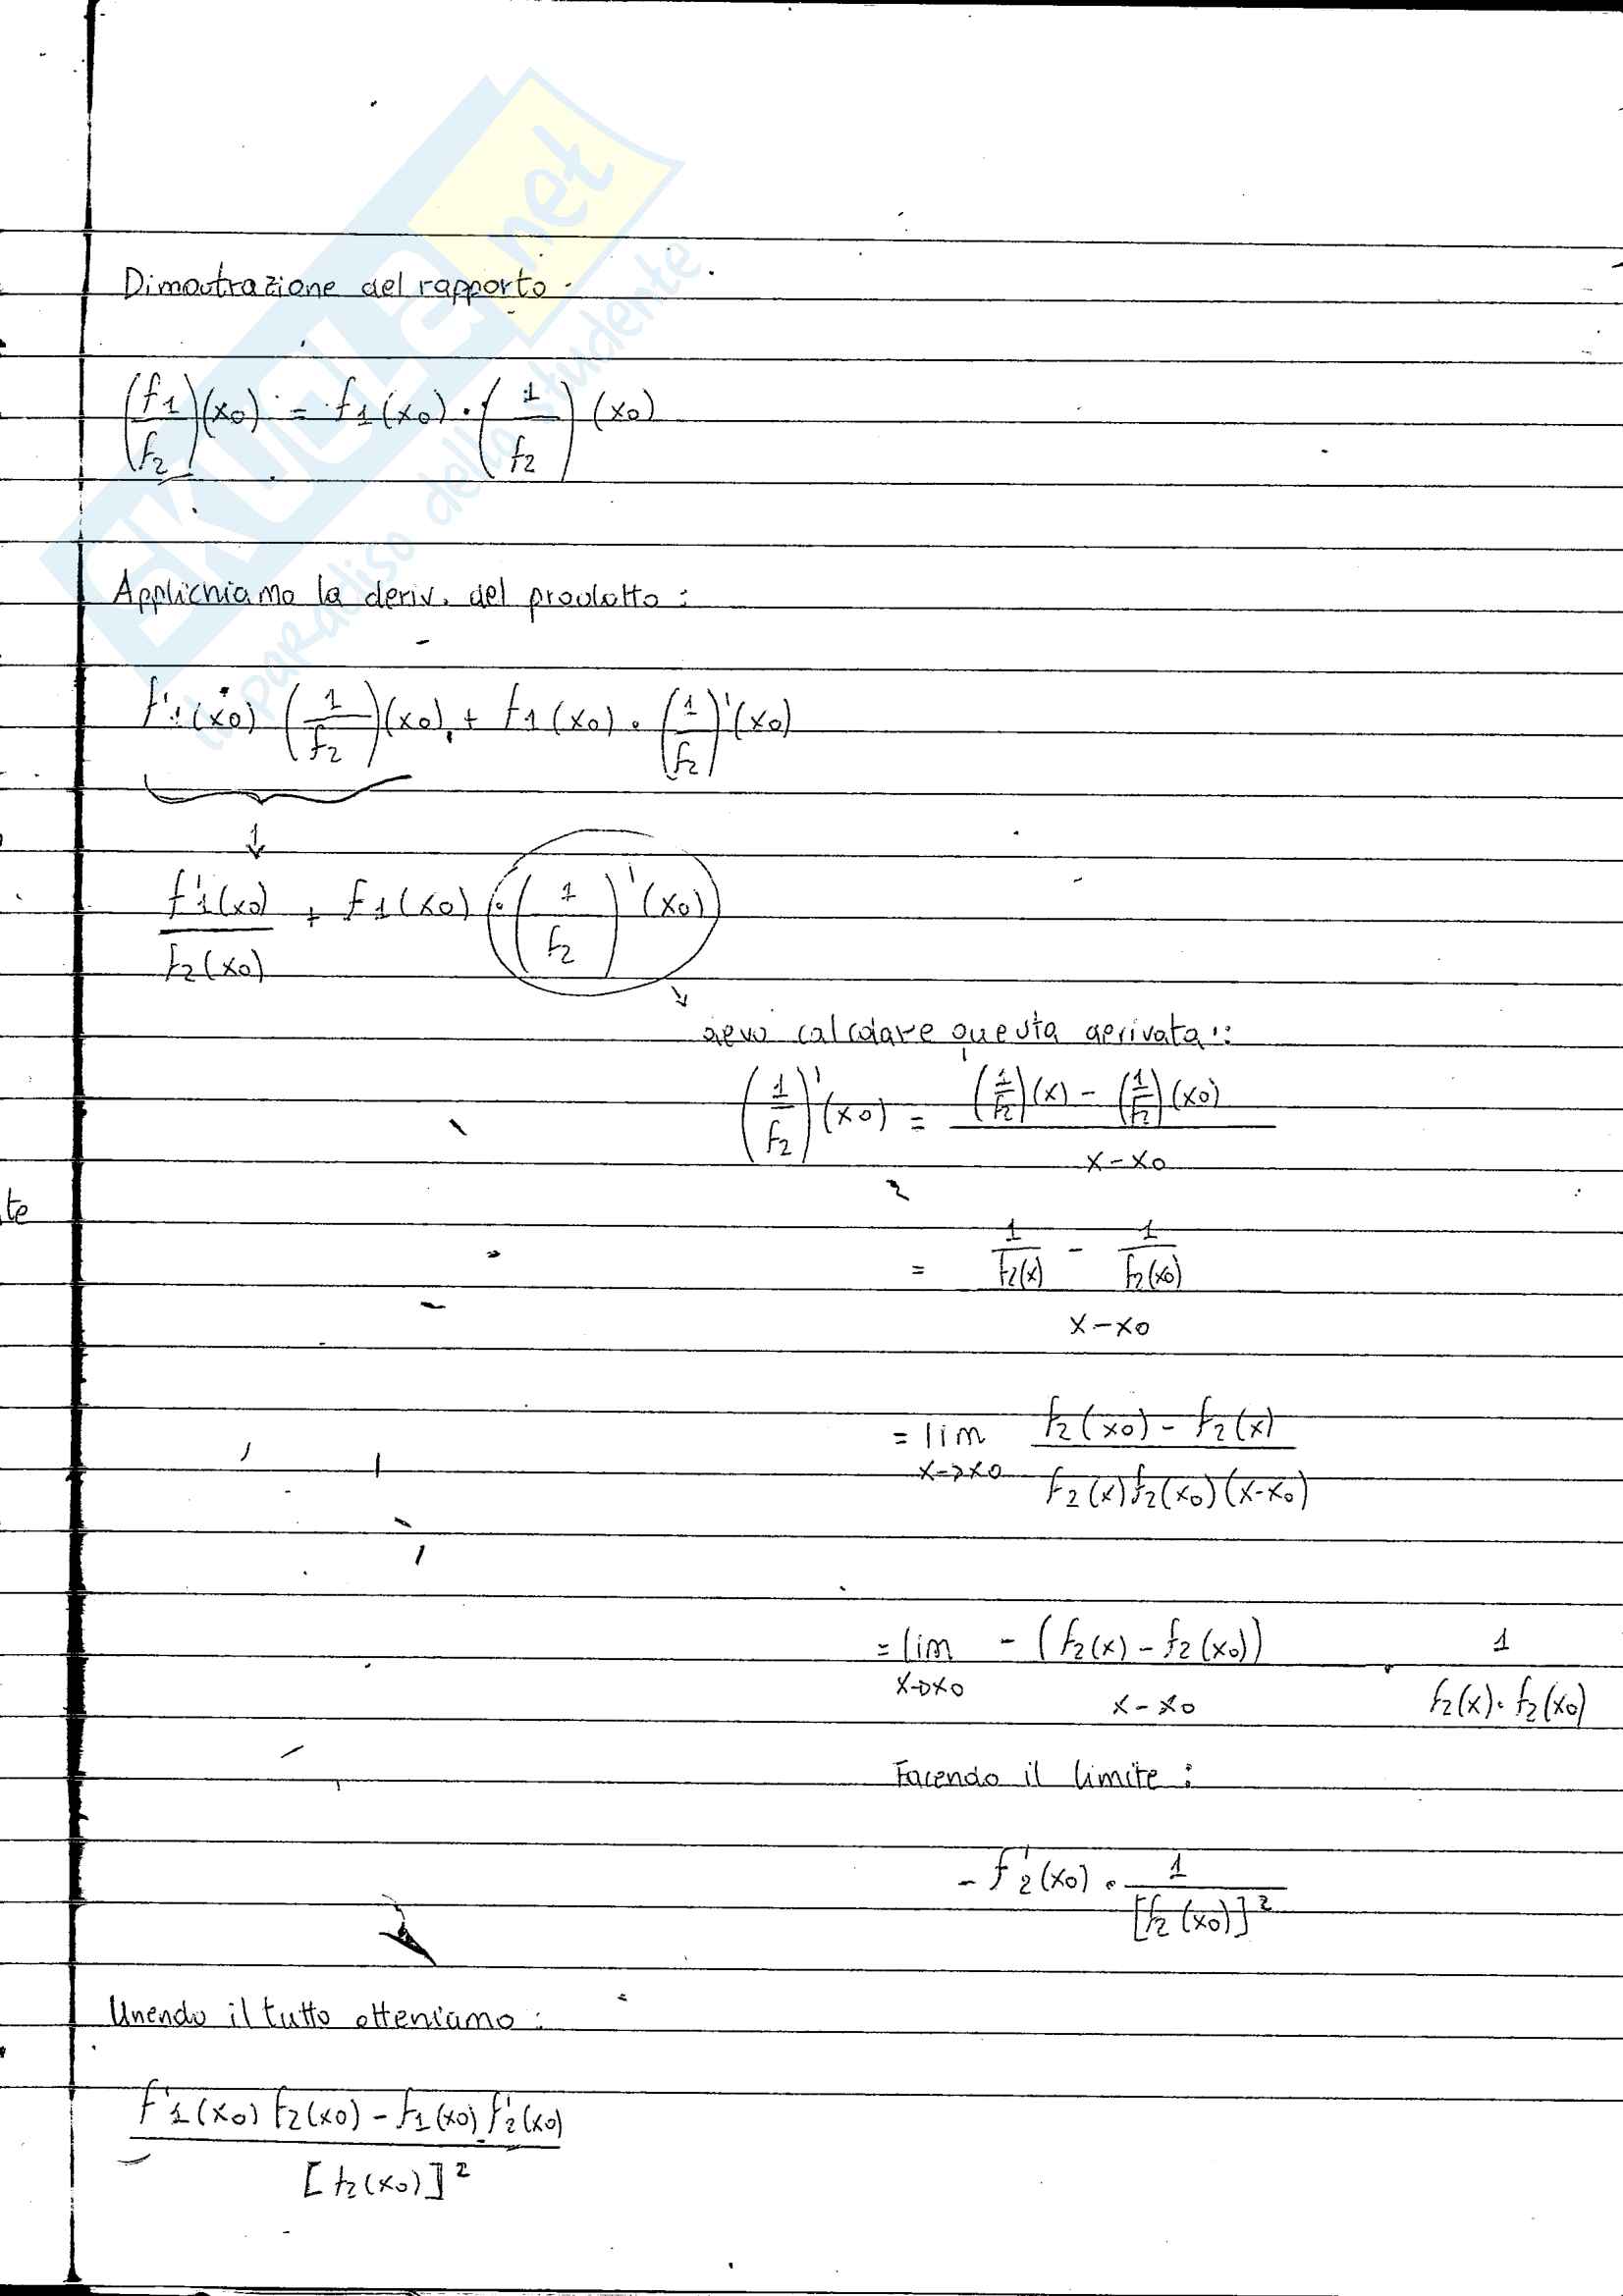 Dimostrazione del rapporto.
(f1/f2)(x0) = f1(x0) · (1/f2)(x0)
Applichiamo la deriv. del prodotto:
f'1(x0) (1/f2)(x0) + f1(x0) · (1/f2)'(x0)
f'1(x0)/f2(x0) + f1(x0) · (1/f2)'(x0)
devo calcolare questa derivata:
(1/f2)'(x0) = ((1/f2)(x) - (1/f2)(x0))/(x-x0)
te
= (1/f2(x) - 1/f2(x0))/(x-x0)
= lim x→x0 (f2(x0) - f2(x))/(f2(x)f2(x0)(x-x0))
= lim x→x0 -(f2(x) - f2(x0))/(x-x0) · 1/(f2(x)·f2(x0))
Facendo il limite:
- f'2(x0) · 1/[f2(x0)]²
Unendo il tutto otteniamo:
(f'1(x0) f2(x0) - f1(x0) f'2(x0))/[f2(x0)]²
skuola.net
il paradiso dello studente